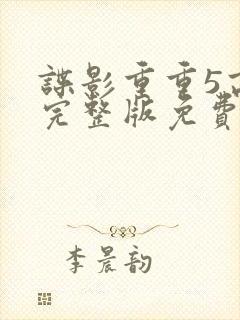 諜影重重5高
完整版免費
李晨韵